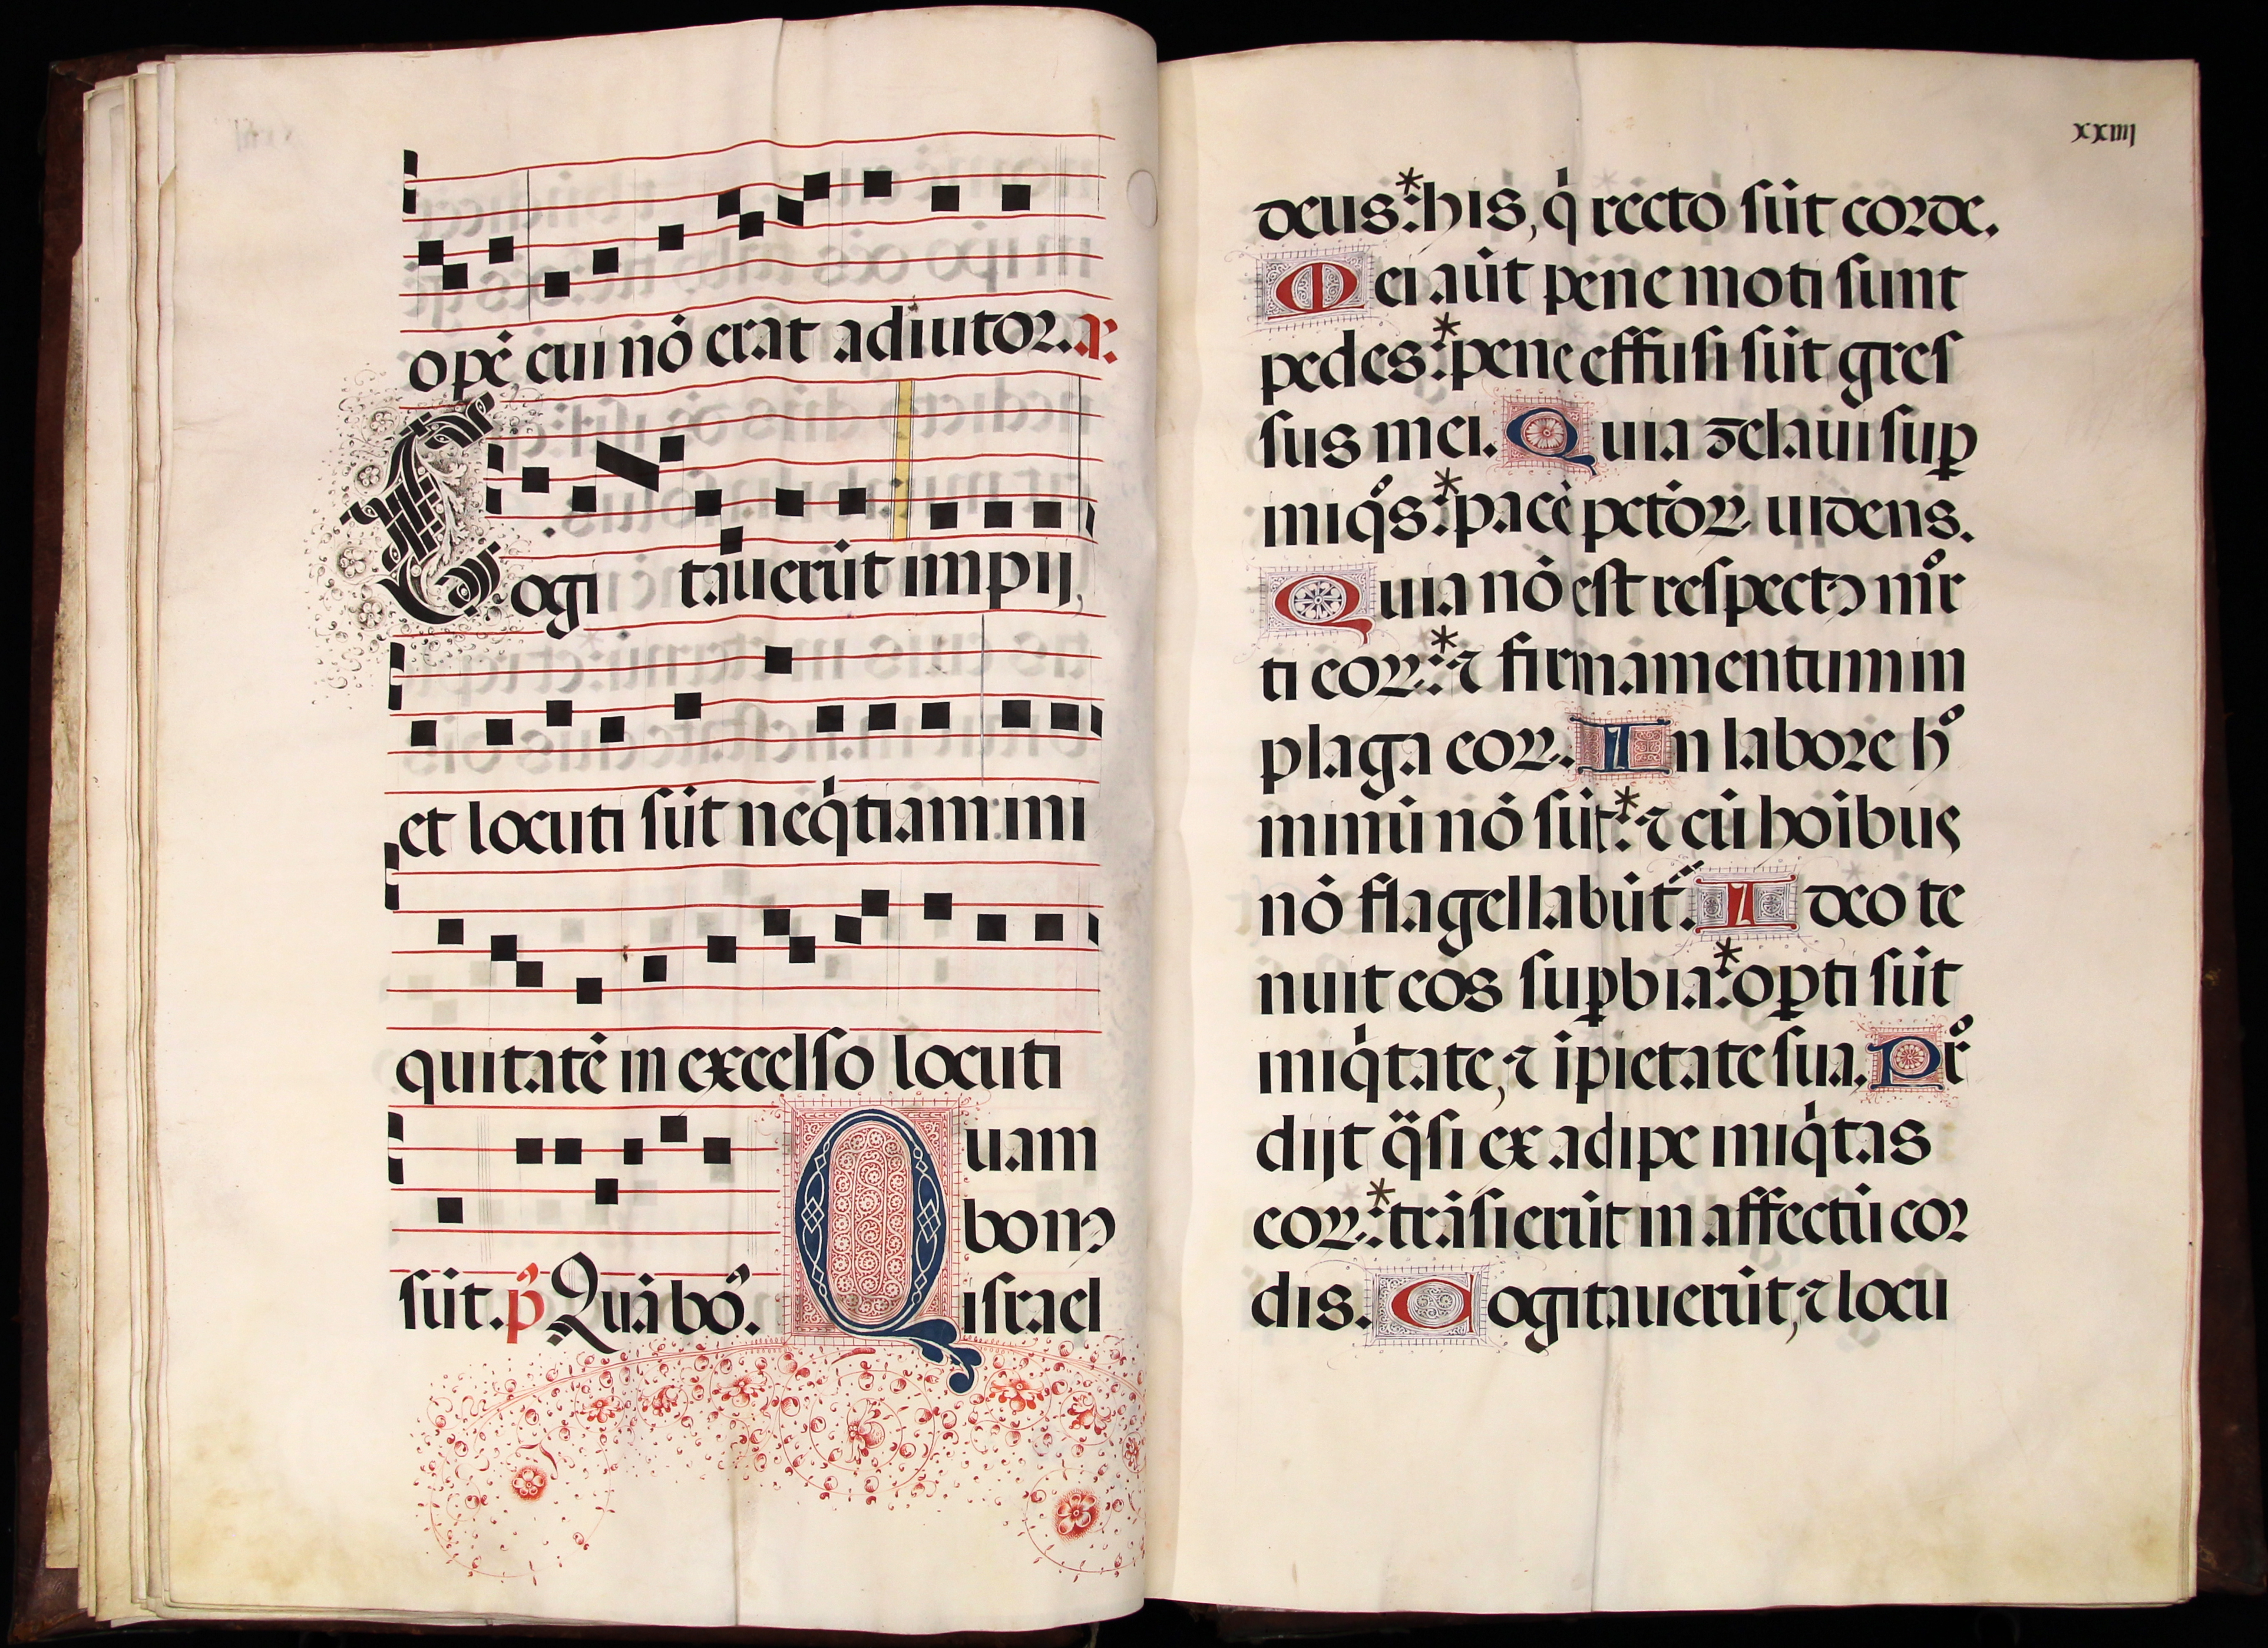 opē, cui nō erat adiutor. a.
Cogitauerūt impij,
et locuti sūt neq̇tiam: ini
quitatē in excelso locuti
sūt. p̄ Quā bo᷒.
Quam
bonꝰ
israel
xxiiij
deus:* his, q̇ recto sūt corde.
Mei aūt pene moti sunt
pedes:* pene effusi sūt gres
sus mei. Quia zelaui suꝑ
iniqͦs:* pacē pctōꝝ uidens.
Quia nō est respectꝰ mͦr
ti eoꝝ:* ⁊ firmamentum in
plaga eoꝝ. In labore hͦ
minū nō sūt:* ⁊ cū hoībus
nō flagellabūt᷑. Ideo te
nuit eos suꝑbia:* oꝑti sūt
iniq̇tate, ⁊ īpietate sua. Pͦr
dijt q̈si ex adipe iniq̇tas
eoꝝ:* trāsierūt in affectū cor
dis. Cogitauerūt, ⁊ locu